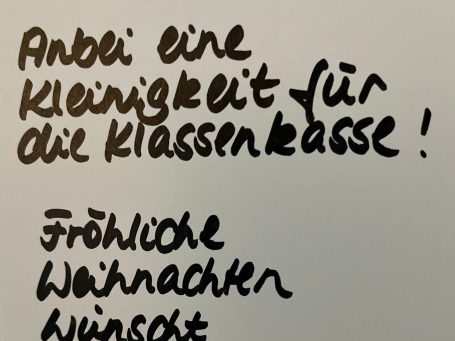 Anbei eine
Kleinigkeit für
die Klassenkasse!
Fröhliche
Weihnachten
wünscht